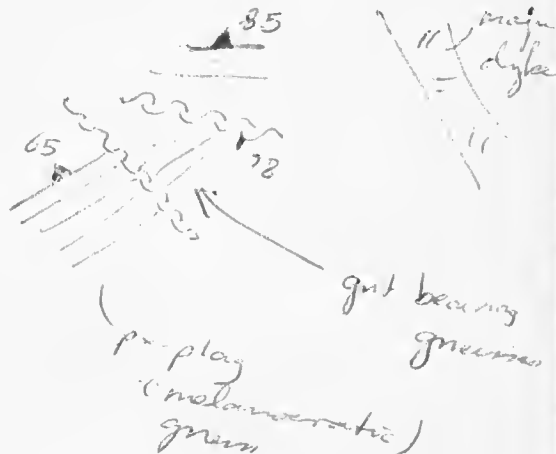 85
major
dyke
65
72
gnt bearing
gneisses
px-plag
(melanocratic)
gneiss